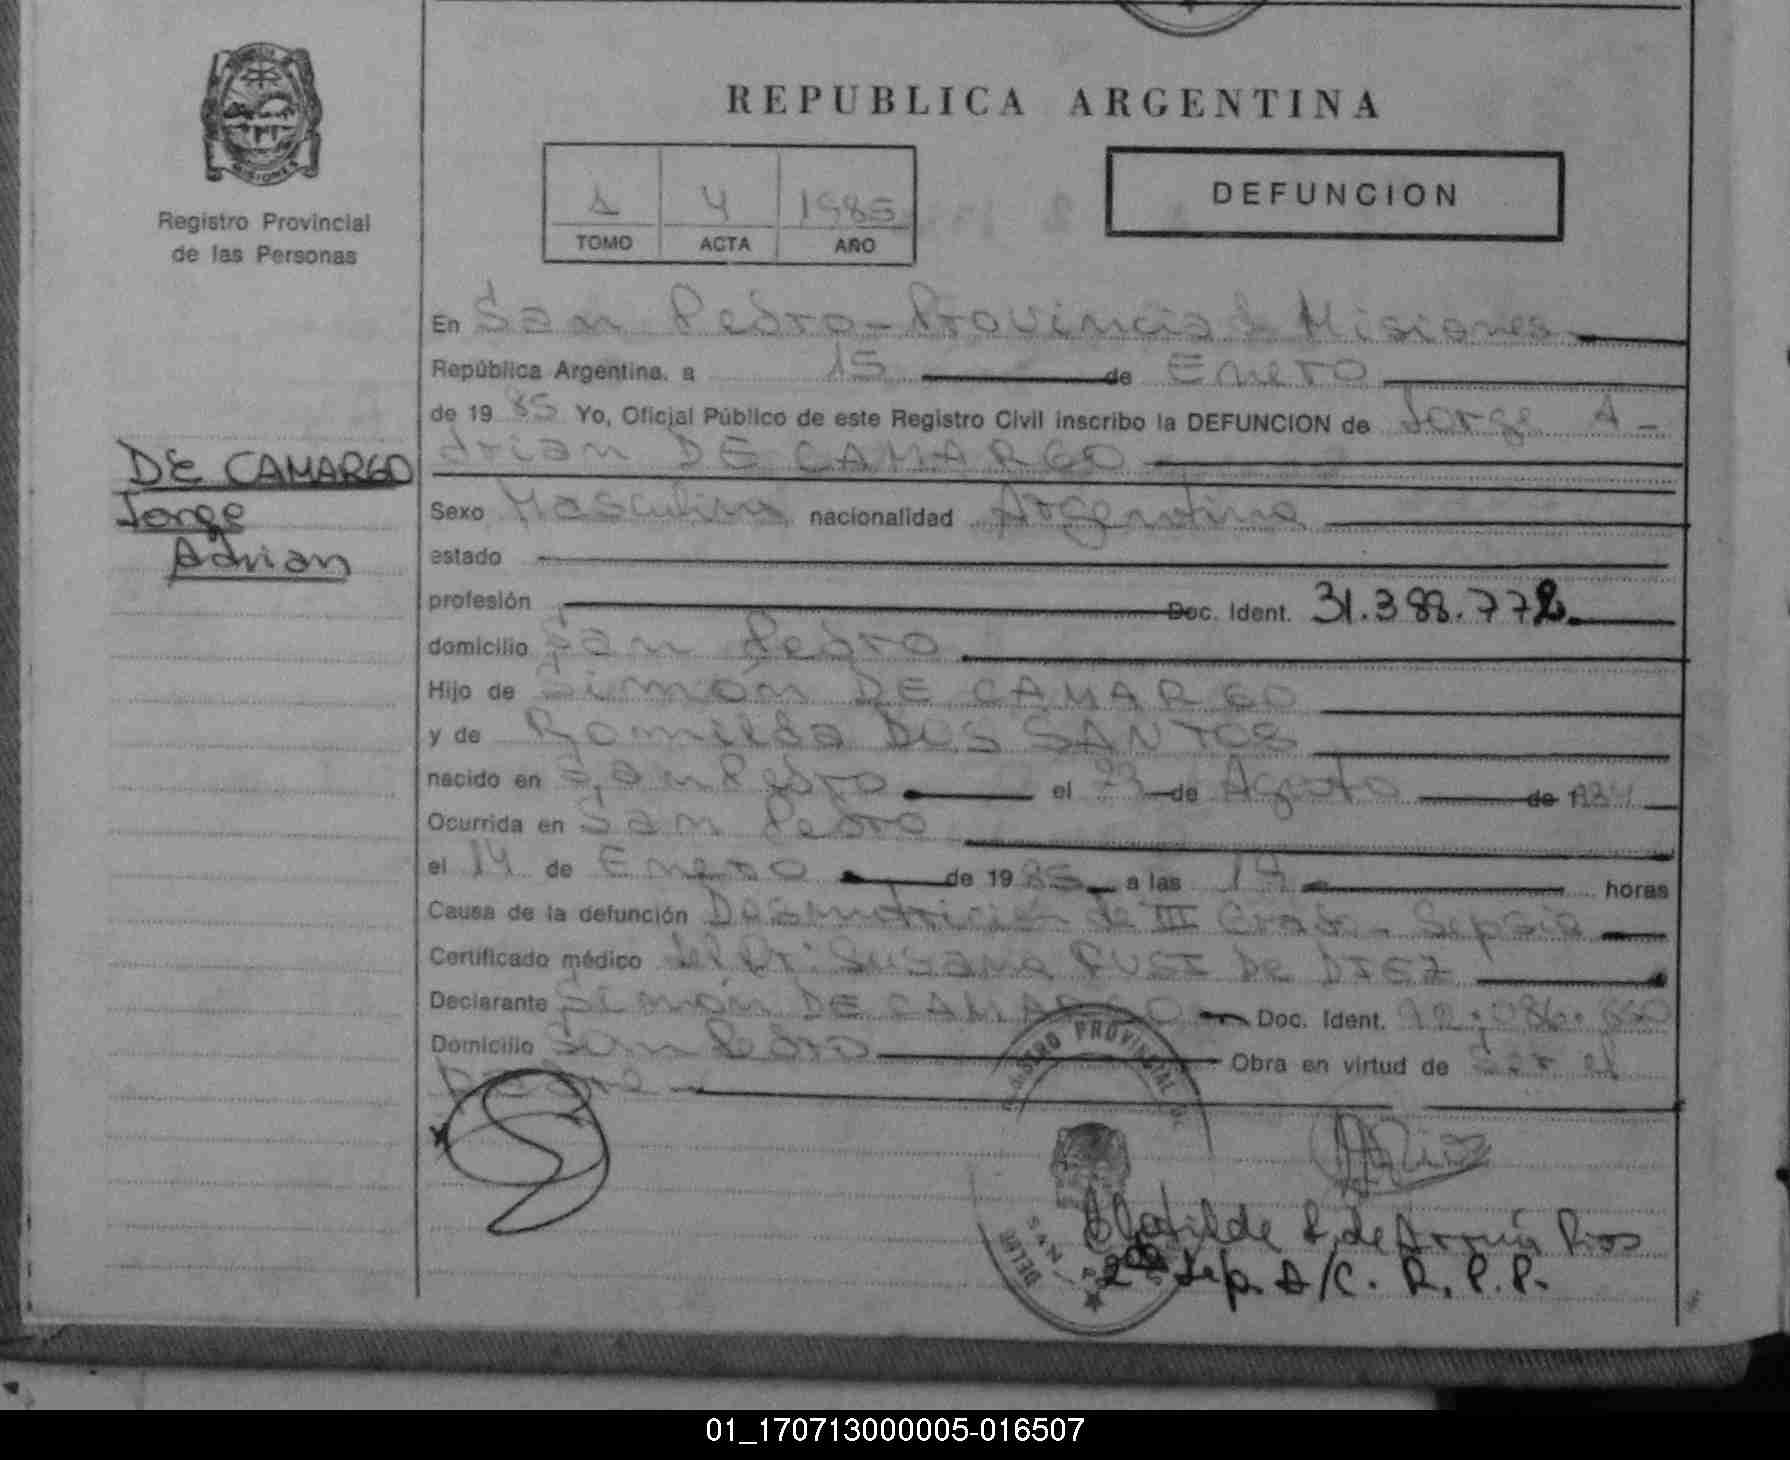 REPUBLICA ARGENTINA
MISIONES
Registro Provincial
de las Personas
1 4 1985
TOMO ACTA AÑO
DEFUNCION
En San Pedro - Provincia de Misiones
República Argentina. a 15 de Enero
de 1985 Yo, Oficial Público de este Registro Civil inscribo la DEFUNCION de Jorge A-
drian DE CAMARGO
DE CAMARGO
Jorge
Adrian
Sexo Masculino nacionalidad Argentina
estado
profesión Doc. Ident. 31.388.772.
domicilio San Pedro
Hijo de Simón DE CAMARGO
y de Romilda DOS SANTOS
nacido en San Pedro el 23 de Agosto de 1984
Ocurrida en San Pedro
el 14 de Enero de 1985 a las 19 horas
Causa de la defunción Desnutrición de III Grado - Sepsis
Certificado médico del Dr: Susana DE DIEZ
Declarante Simón DE CAMARGO Doc. Ident. 92.086.
Domicilio San Pedro Obra en virtud de ser el
padre
REGISTRO PROVINCIAL DE
Clotilde de Ríos
2da Sup. A/C. R.P.P.
01_170713000005-016507